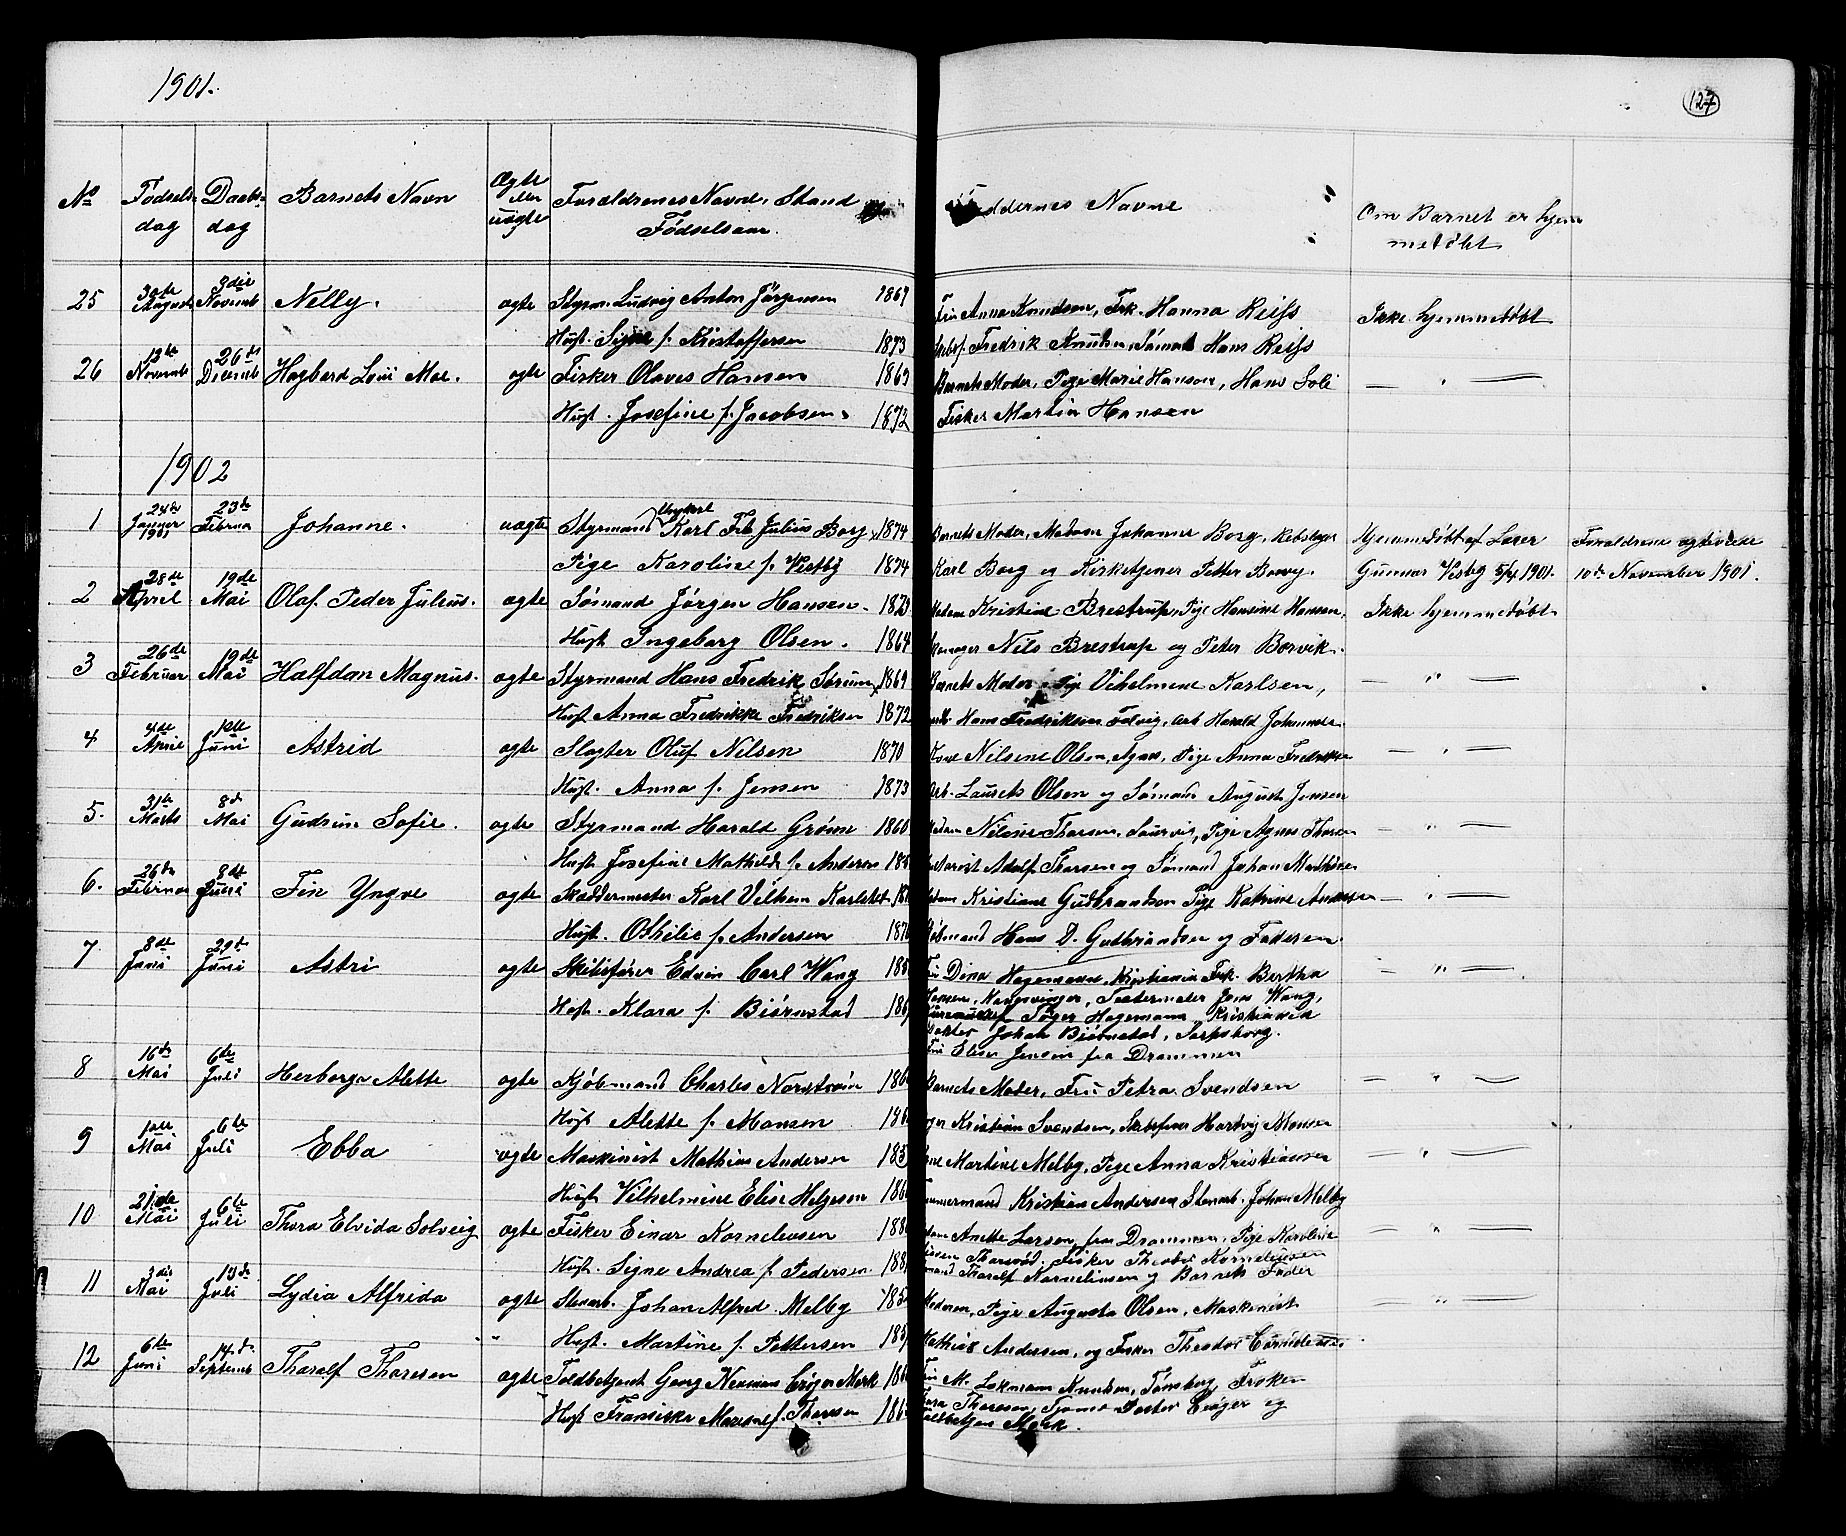 1901.
127
No Fødsels- dag Daabs- dag Barnets Navn Ægte eller uægte Forældrenes Navne, Stand Fødselsaar. Faddernes Navne Om Barnet er hjem- medøbt
25 30te August 3die Novemb Nelly. ægte Styrm. Ludvig Anton Jørgensen 1867 Fru Anna Knudsen, Frk. Hanna Reiss Ikke hjemmedøbt
Hust. Signe f. Kristoffersen 1873 Skibsf. Fredrik Knudsen, Sømand Hans Reiss
26 12te Novemb 26de Decemb Hagbard Loui Mae. ægte Fisker Olaves Hansen 1869 Barnets Moder, Pige Marie Hansen, Hans Soli — " —
Hust. Josefine f. Jacobsen. 1872 Fisker Martin Hansen
1902
1 24de Januar 1901 23de Februa Johanne. uægte Styrmand Ungkarl Karl Frb Julius Borg 1874 Barnets Moder, Madam Johanne Borg, Rebslager Hjemmedøbt af Lærer Forældrene ægteviede
Pige Karoline f. Vestby 1874 Karl Borg og Kirketjener Petter Borg. Gunnar Visby 5/4 1901. 10de November 1901.
2 28de April 19de Mai Olaf Peder Julius. ægte Sømand Jørgen Hansen. 1873 Madam Kristine Brestrup, Pige Hansine Hansen, Ikke hjemmedøbt
Hust Ingeborg Olsen. 1864 Nils Brestrup og Peter Borvik.
3 26de Februar 19de Mai Halfdan Magnus. ægte Styrmand Hans Fredrik Sørum 1869 Barnets Moder Pige Vilhelmine Karlsen, — " —
Hust Anna Fredrikke Fredriksen 1872 Hans Fredriksen Fodvig, Arb Harald Johannesen
4 4de April 1ste Juni Astrid ægte Slagter Oluf Nilsen 1870 Kone Nilsine Olsen, Agnes, Pige Anna Fredriksen — " —
Hust. Anna f. Jensen 1873 Arb. Laurets Olsen og Sømand August Jensen
5. 31te Marts 8de Mai Gudrun Sofie. ægte Styrmand Harald Grønn 1860 Madam Nilsine Thorsen, Sourvig, Pige Agnes Thorsen — " —
Hust. Josefine Mathilde f. Andersen Adolf Thorsen og Sømand Johan Mathisen
6. 26de Februa 8de Juni Fin Yngve ægte Skræddermester Karl Vilhem Karlstet Kristiane Gudbrandsen Pige Katrine Andersen — " —
Hust. Othilie f. Andersen 187 Kjøbmand Hans D. Gudbrandsen og Faderen.
7 8de Juni 29de Juni Astri ægte Skibsfører Edvin Carl Wang Fru Dina Hagemann, Kristiania Frk. Bertha — " —
Hust. Klara f. Biørnstad 186 Hansen, Kongsvinger, Teatermaler Jens Wang,
Søger Hagemann Kristiania
Johan Biørnstad, Sarpsborg.
Fru Elise Jensen fra Drammen
8 16de Mai 6de Juli Herborga Alette ægte Kjøbmand Charles Nordstrøm 186 Barnets Moder, Fru Petra Svendsen — " —
Hust Alette f. Monsen 186 Kristian Svendsen, Skibsfører Hartvig Monsen
9 1ste Mai 6te Juli Ebba ægte Maskinist Mathias Andersen 185 Kone Martine Melby, Pige Anna Kristiansen — " —
Hust Vilhelmine Elise Helgesen 186 Tømmermand Kristian Andersen Stenarb. Johan Melby
10 21de Mai 6te Juli Thora Elvida Solveig ægte Fisker Einar Korneliusen 188 Madam Anette Larsen, fra Drammen, Pige Karoline — " —
Hust. Signe Andrea f. Pedersen. 188 Fisker Theodor Korneliusen
Tharalf Korneliusen og Barnets Fader
11 3die Mai 13de Juli Lydia Alfrida ægte Stenarb. Johan Alfred Melby 185 Moderen, Pige Augusta Olsen, Maskinist — " —
Hust. Martine f. Pettersen 185 Mathias Andersen, og Fisker Theodor Corneliussen
12 6te Juni 14de Septemb Tharalf Thoresen ægte Toldbetjent Georg Neuman Crøger Mørk 186 Fru M. Lokmann Knudsen, Tønsberg, Frøken
Hust Fransiska Marine f. Thoresen 186 Thora Thoresen, Tjømø Pastor Crøger og
Toldbetjen Mørk.